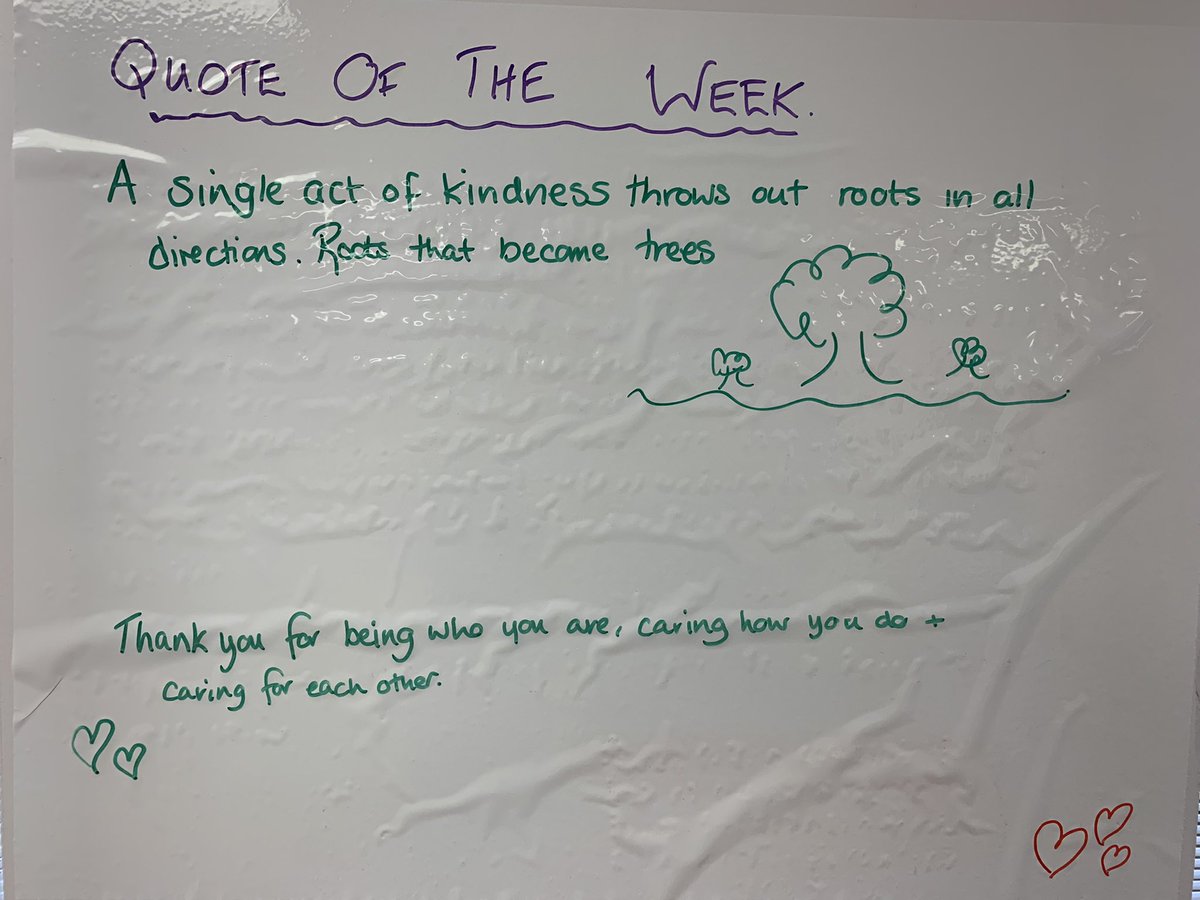 QUOTE OF THE WEEK.
A single act of kindness throws out roots in all
directions. Roots that become trees
Thank you for being who you are, caring how you do +
caring for each other.